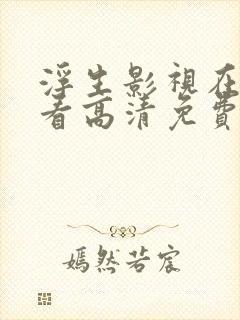 浮生影視在
看高清免費
嫣然若宸